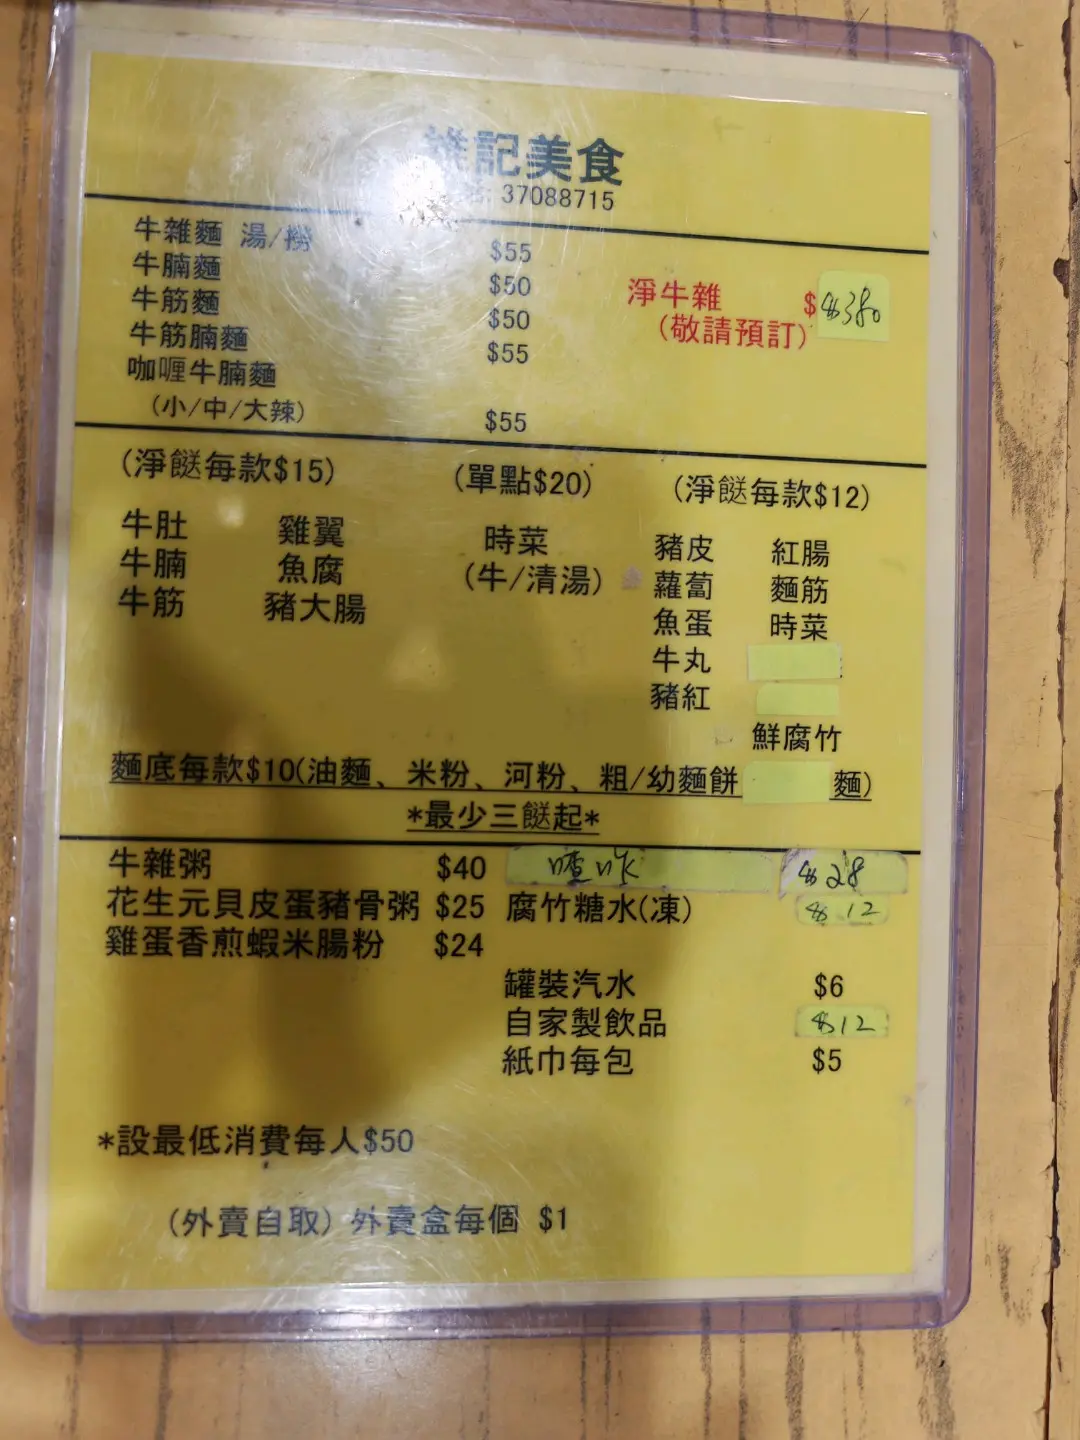 記美食
37088715
牛雜麵 湯/撈 $55
牛腩麵 $50
牛筋麵 $50
牛筋腩麵 $55
咖喱牛腩麵
(小/中/大辣) $55
淨牛雜 $ $380
(敬請預訂)
(淨餸每款$15)
牛肚 雞翼
牛腩 魚腐
牛筋 豬大腸
(單點$20)
時菜
(牛/清湯)
(淨餸每款$12)
豬皮 紅腸
蘿蔔 麵筋
魚蛋 時菜
牛丸
豬紅
鮮腐竹
麵底每款$10(油麵、米粉、河粉、粗/幼麵餅 麵)
*最少三餸起*
牛雜粥 $40
花生元貝皮蛋豬骨粥 $25
雞蛋香煎蝦米腸粉 $24
喳咋 $28
腐竹糖水(凍) $12
罐裝汽水 $6
自家製飲品 $12
紙巾每包 $5
*設最低消費每人$50
(外賣自取) 外賣盒每個 $1